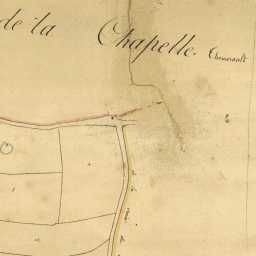 de la Chapelle. Chenerault